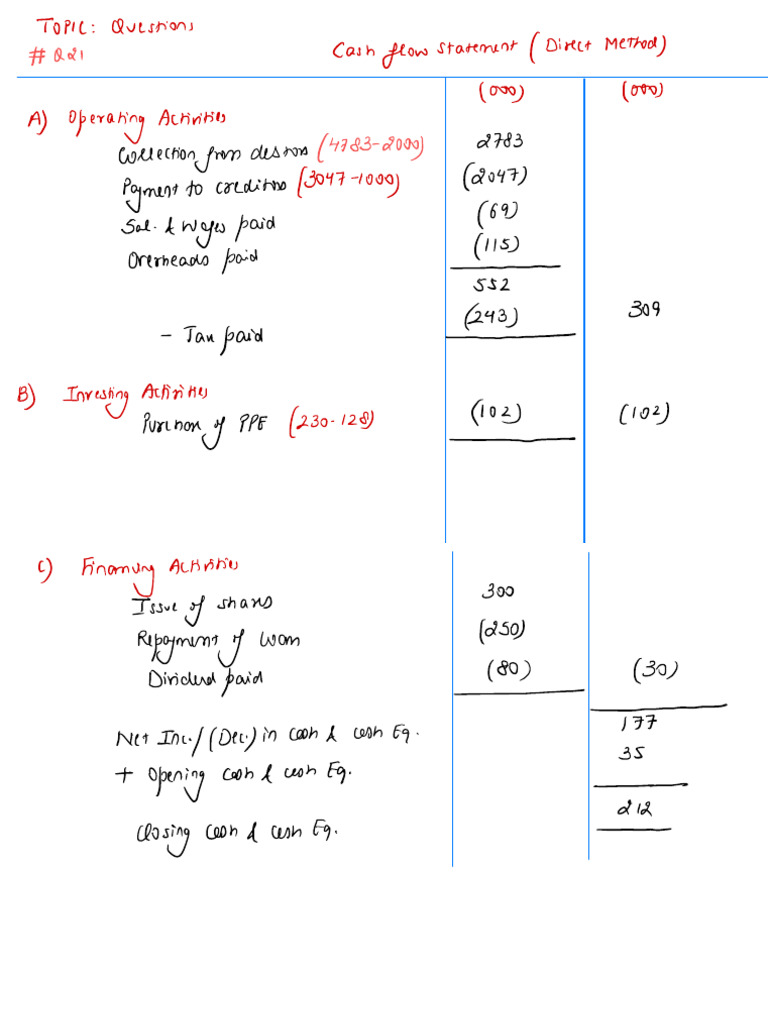 TOPIC: Questions
# Q21
Cash flow statement (Direct Method)
(000) (000)
A) Operating Activities
Collection from destors (4783-2000) 2783
Payment to creditors (3047-1000) (2047)
Sal. & wages paid (69)
Overheads paid (115)
552
- Tax paid (243) 309
B) Investing Activities
Purchase of PPE (230-128) (102) (102)
C) Financing Activities
Issue of shares 300
Repayment of loan (250)
Dividend paid (80) (30)
Net Inc./(Dec.) in cash & cash Eq. 177
+ Opening cash & cash Eq. 35
Closing cash & cash Eq. 212